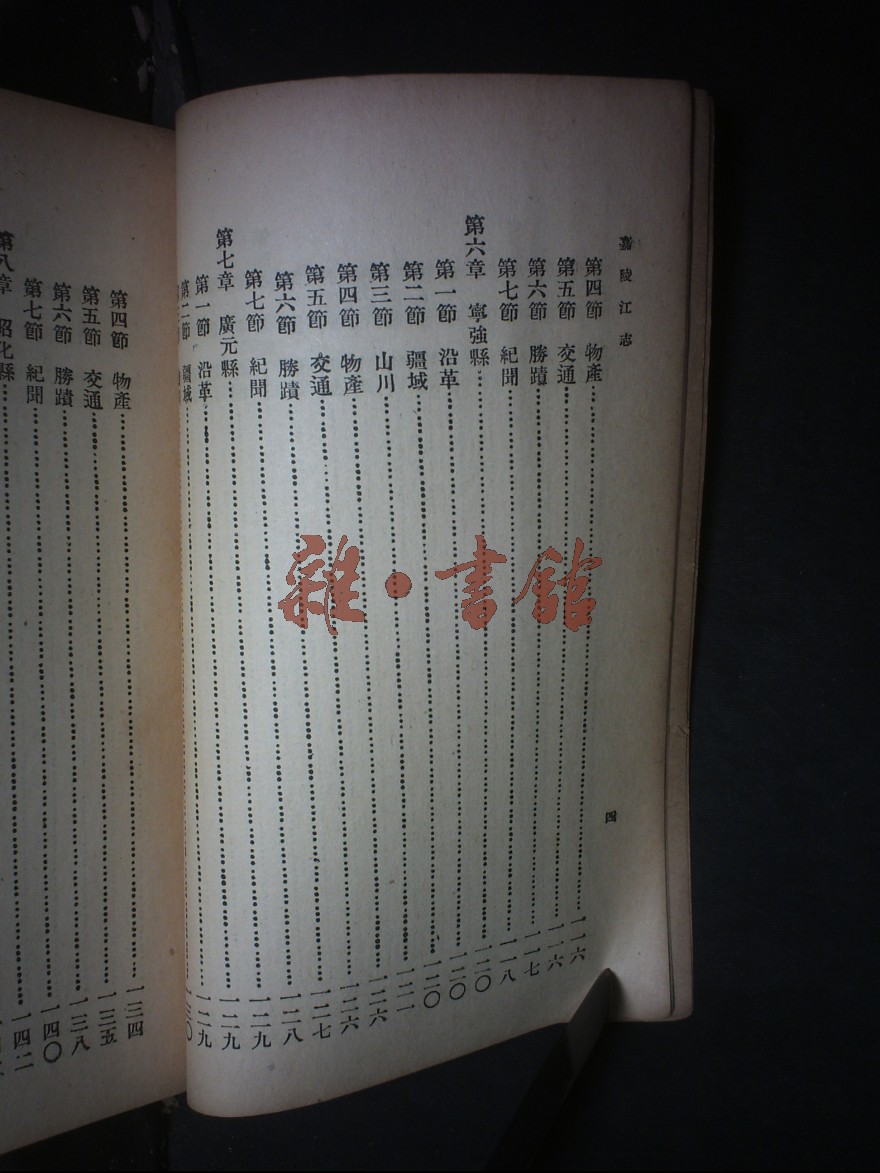 嘉陵江志
四
第四節 物產……一一六
第五節 交通……一一六
第六節 勝蹟……一一七
第七節 紀聞……一一八
第六章 寧強縣……一二〇
第一節 沿革……一二〇
第二節 疆域……一二〇
第三節 山川……一二一
第四節 物產……一二六
第五節 交通……一二六
第六節 勝蹟……一二七
第七節 紀聞……一二八
第七章 廣元縣……一二九
第一節 沿革……一二九
第二節 疆域……一二九
一三〇
第四節 物產……一三四
第五節 交通……一三五
第六節 勝蹟……一三八
第七節 紀聞……一四〇
第八章 昭化縣……一四二
雜·書館